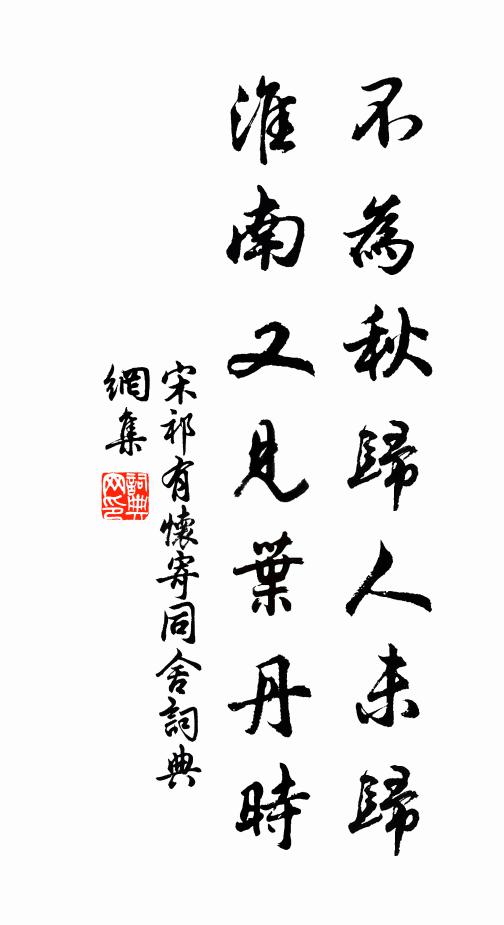 不為秋歸人未歸
淮南又見葉丹時
宋祁有懷寄同舍詞典
網集
詞典
网印